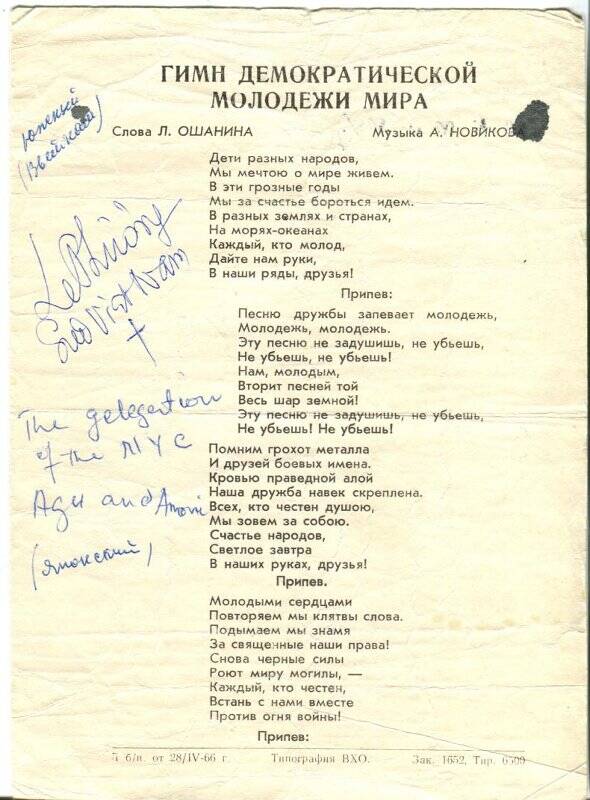 ГИМН ДЕМОКРАТИЧЕСКОЙ
МОЛОДЕЖИ МИРА
Слова Л. ОШАНИНА
Музыка А. НОВИКОВА
Дети разных народов,
Мы мечтою о мире живем.
В эти грозные годы
Мы за счастье бороться идем.
В разных землях и странах,
На морях-океанах
Каждый, кто молод,
Дайте нам руки,
В наши ряды, друзья!
Припев:
Песню дружбы запевает молодежь,
Молодежь, молодежь.
Эту песню не задушишь, не убьешь,
Не убьешь, не убьешь!
Нам, молодым,
Вторит песней той
Весь шар земной!
Эту песню не задушишь, не убьешь,
Не убьешь! Не убьешь!
Помним грохот металла
И друзей боевых имена.
Кровью праведной алой
Наша дружба навек скреплена.
Всех, кто честен душою,
Мы зовем за собою.
Счастье народов,
Светлое завтра
В наших руках, друзья!
Припев.
Молодыми сердцами
Повторяем мы клятвы слова.
Подымаем мы знамя
За священные наши права!
Снова черные силы
Роют миру могилы, —
Каждый, кто честен,
Встань с нами вместе
Против огня войны!
Припев:
б/п. от 28/IV-66 г. Типография ВХО. Зак. 1652, Тир. 6500
южный
Viet Nam
The gelegation
of the MYC
and
(японский)